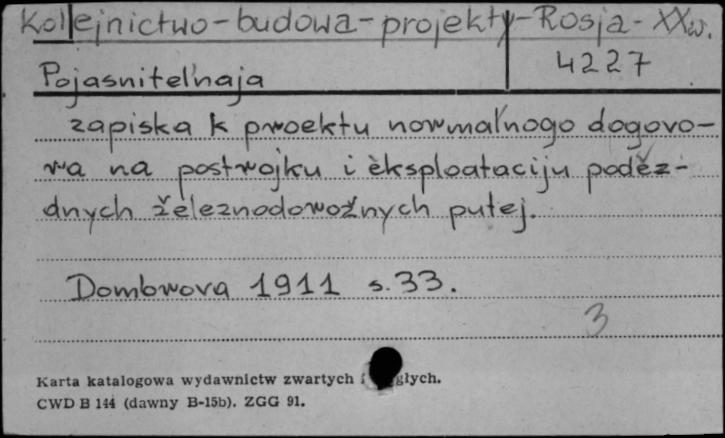 Kolejnictwo-budowa-projekty-Rosja-XXw.
4227
Pojasnitel'naja
zapiska k proektu normal'nogo dogovo-
ra na postrojku i èksploataciju podèz-
dnych železnodorožnych putej.
Dombrova 1911 s.33.
3
Karta katalogowa wydawnictw zwartych głych.
CWD B 144 (dawny B-15b). ZGG 91.